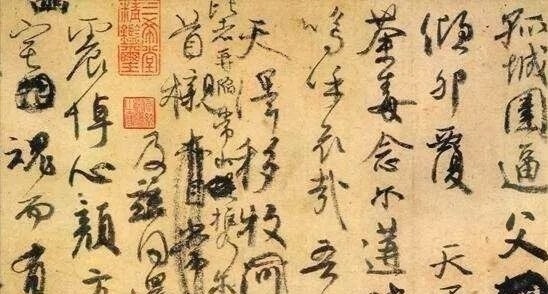 孤城圍逼父
傾卵覆 天
荼毒念尔遘
嗚呼哀哉吾
天澤移牧河
比者再陷常山攜尔
首櫬
及茲同還
三希堂
精鑑璽
震悼心顏方
宅魂而有